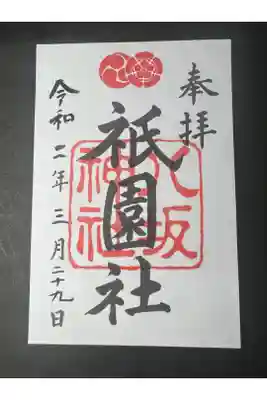 奉拝
祇園社
八坂神社
令和二年三月二十九日